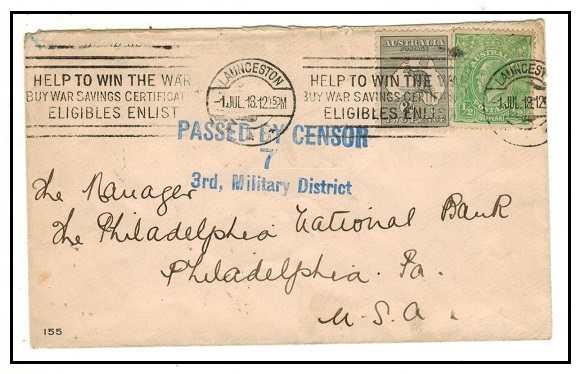 HELP TO WIN THE WAR
BUY WAR SAVINGS CERTIFICATES
ELIGIBLES ENLIST
LAUNCESTON
-1 JUL 18. 12
HELP TO WIN THE
BUY WAR SAVINGS CERTIF
ELIGIBLES ENLIS
AUSTRALIA
POSTAGE
LAUNCEST
-1 JUL 18. 12
PASSED BY CENSOR
7
3rd, Military District
The Manager
The Philadelphia National Bank
Philadelphia. Pa.
U.S.A.
155